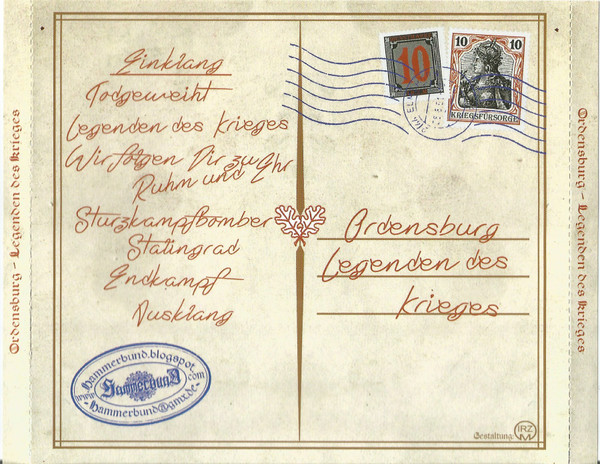 Einklang
Todgeweiht
Legenden des Krieges
Wir folgen Dir zu Ihr
Ruhm und Ehr
Sturzkampfbomber
Stalingrad
Endkampf
Ausklang
Ordensburg
Legenden des
Krieges
10
10
KRIEGSFÜRSORGE
Ordensburg - Legenden des Krieges
Ordensburg - Legenden des Krieges
Hammerbund.blogspot.
www.
com
Hammerbund
-Hammerbund@gmx.de-
Gestaltung:
IRZ